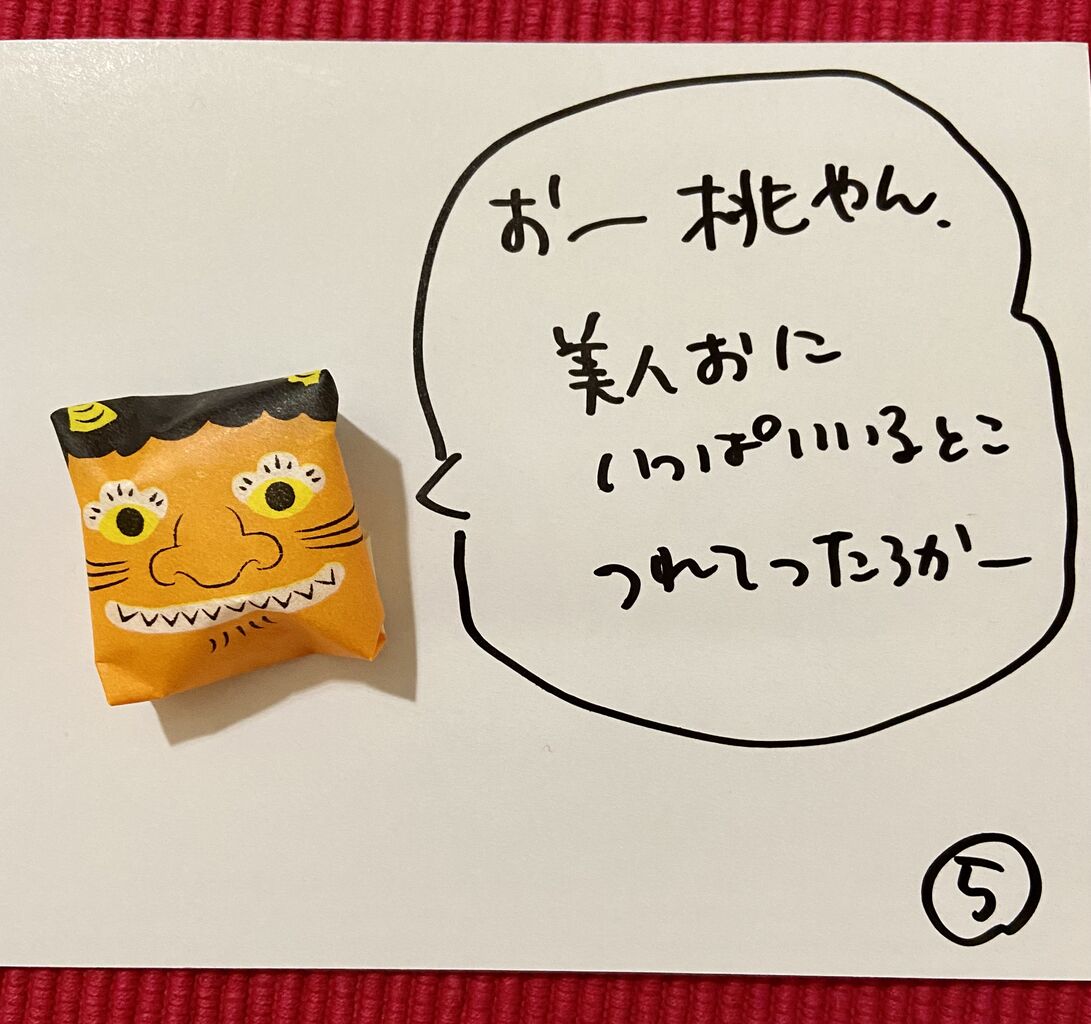 おー 桃やん.
美人おに
いっぱいいるとこ
つれてったろかー
5